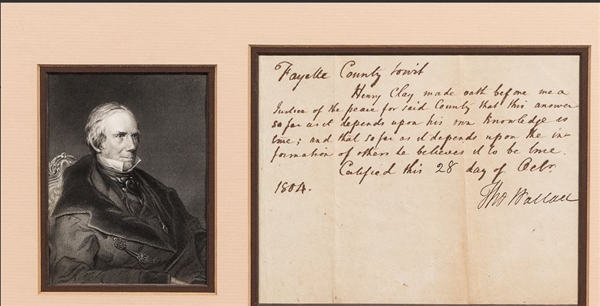 Fayette County towit
Henry Clay made oath before me a
Justice of the peace for said County that this answer
so far as it depends upon his own Knowledge is
true; and that so far as it depends upon the in
formation of others he believes it to be true.
Certified this 28 day of Octr.
1804.
Tho Wallace